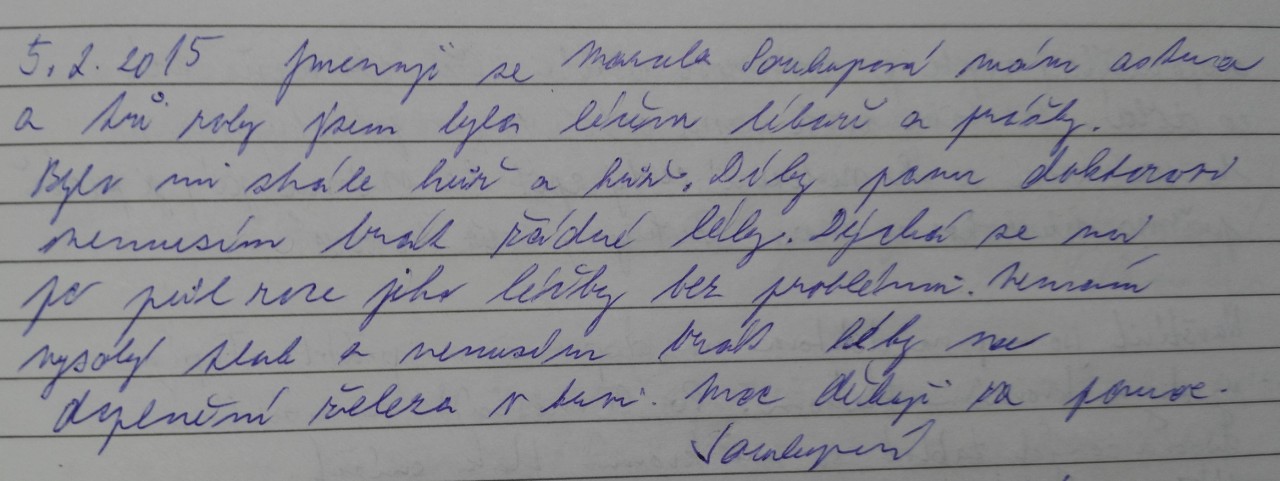 5.2.2015 Jmenuji se Marcela Soukupová mám astma
a tři roky jsem byla léčena lékaři a prášky.
Bylo mi stále hůř a hůř. Díky panu doktorovi
nemusím brát žádné léky. Dýchá se mi
po půl roce jeho léčby bez problémů. Nemám
vysoký tlak a nemusím brát léky na
doplnění železa v krvi. Moc děkuji za pomoc.
Soukupová